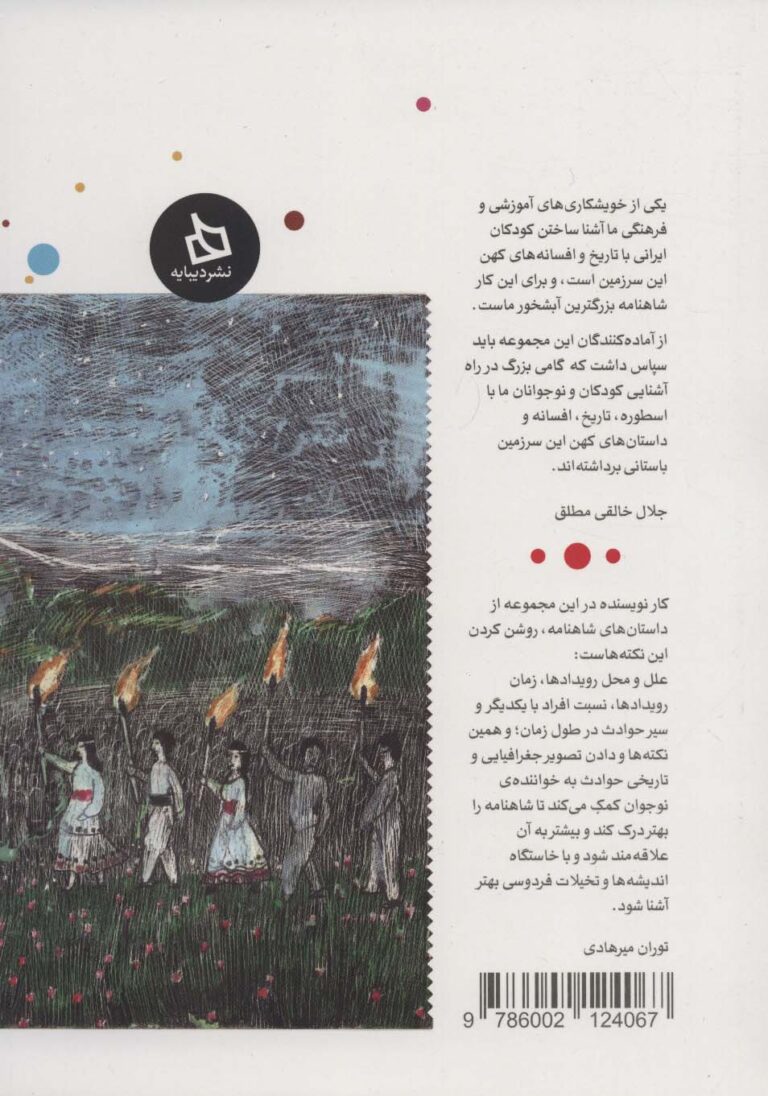 نشر دیبایه
یکی از خویشکاری‌های آموزشی و
فرهنگی ما آشنا ساختن کودکان
ایرانی با تاریخ و افسانه‌های کهن
این سرزمین است، و برای این کار
شاهنامه بزرگترین آبشخور ماست.
از آماده‌کنندگان این مجموعه باید
سپاس داشت که گامی بزرگ در راه
آشنایی کودکان و نوجوانان ما با
اسطوره، تاریخ، افسانه و
داستان‌های کهن این سرزمین
باستانی برداشته‌اند.
جلال خالقی مطلق
کار نویسنده در این مجموعه از
داستان‌های شاهنامه، روشن کردن
این نکته‌هاست:
علل و محل رویدادها، زمان
رویدادها، نسبت افراد با یکدیگر و
سیر حوادث در طول زمان؛ و همین
نکته‌ها و دادن تصویر جغرافیایی و
تاریخی حوادث به خواننده‌ی
نوجوان کمک می‌کند تا شاهنامه را
بهتر درک کند و بیشتر به آن
علاقه‌مند شود و با خاستگاه
اندیشه‌ها و تخیلات فردوسی بهتر
آشنا شود.
توران میرهادی
9 786002 124067